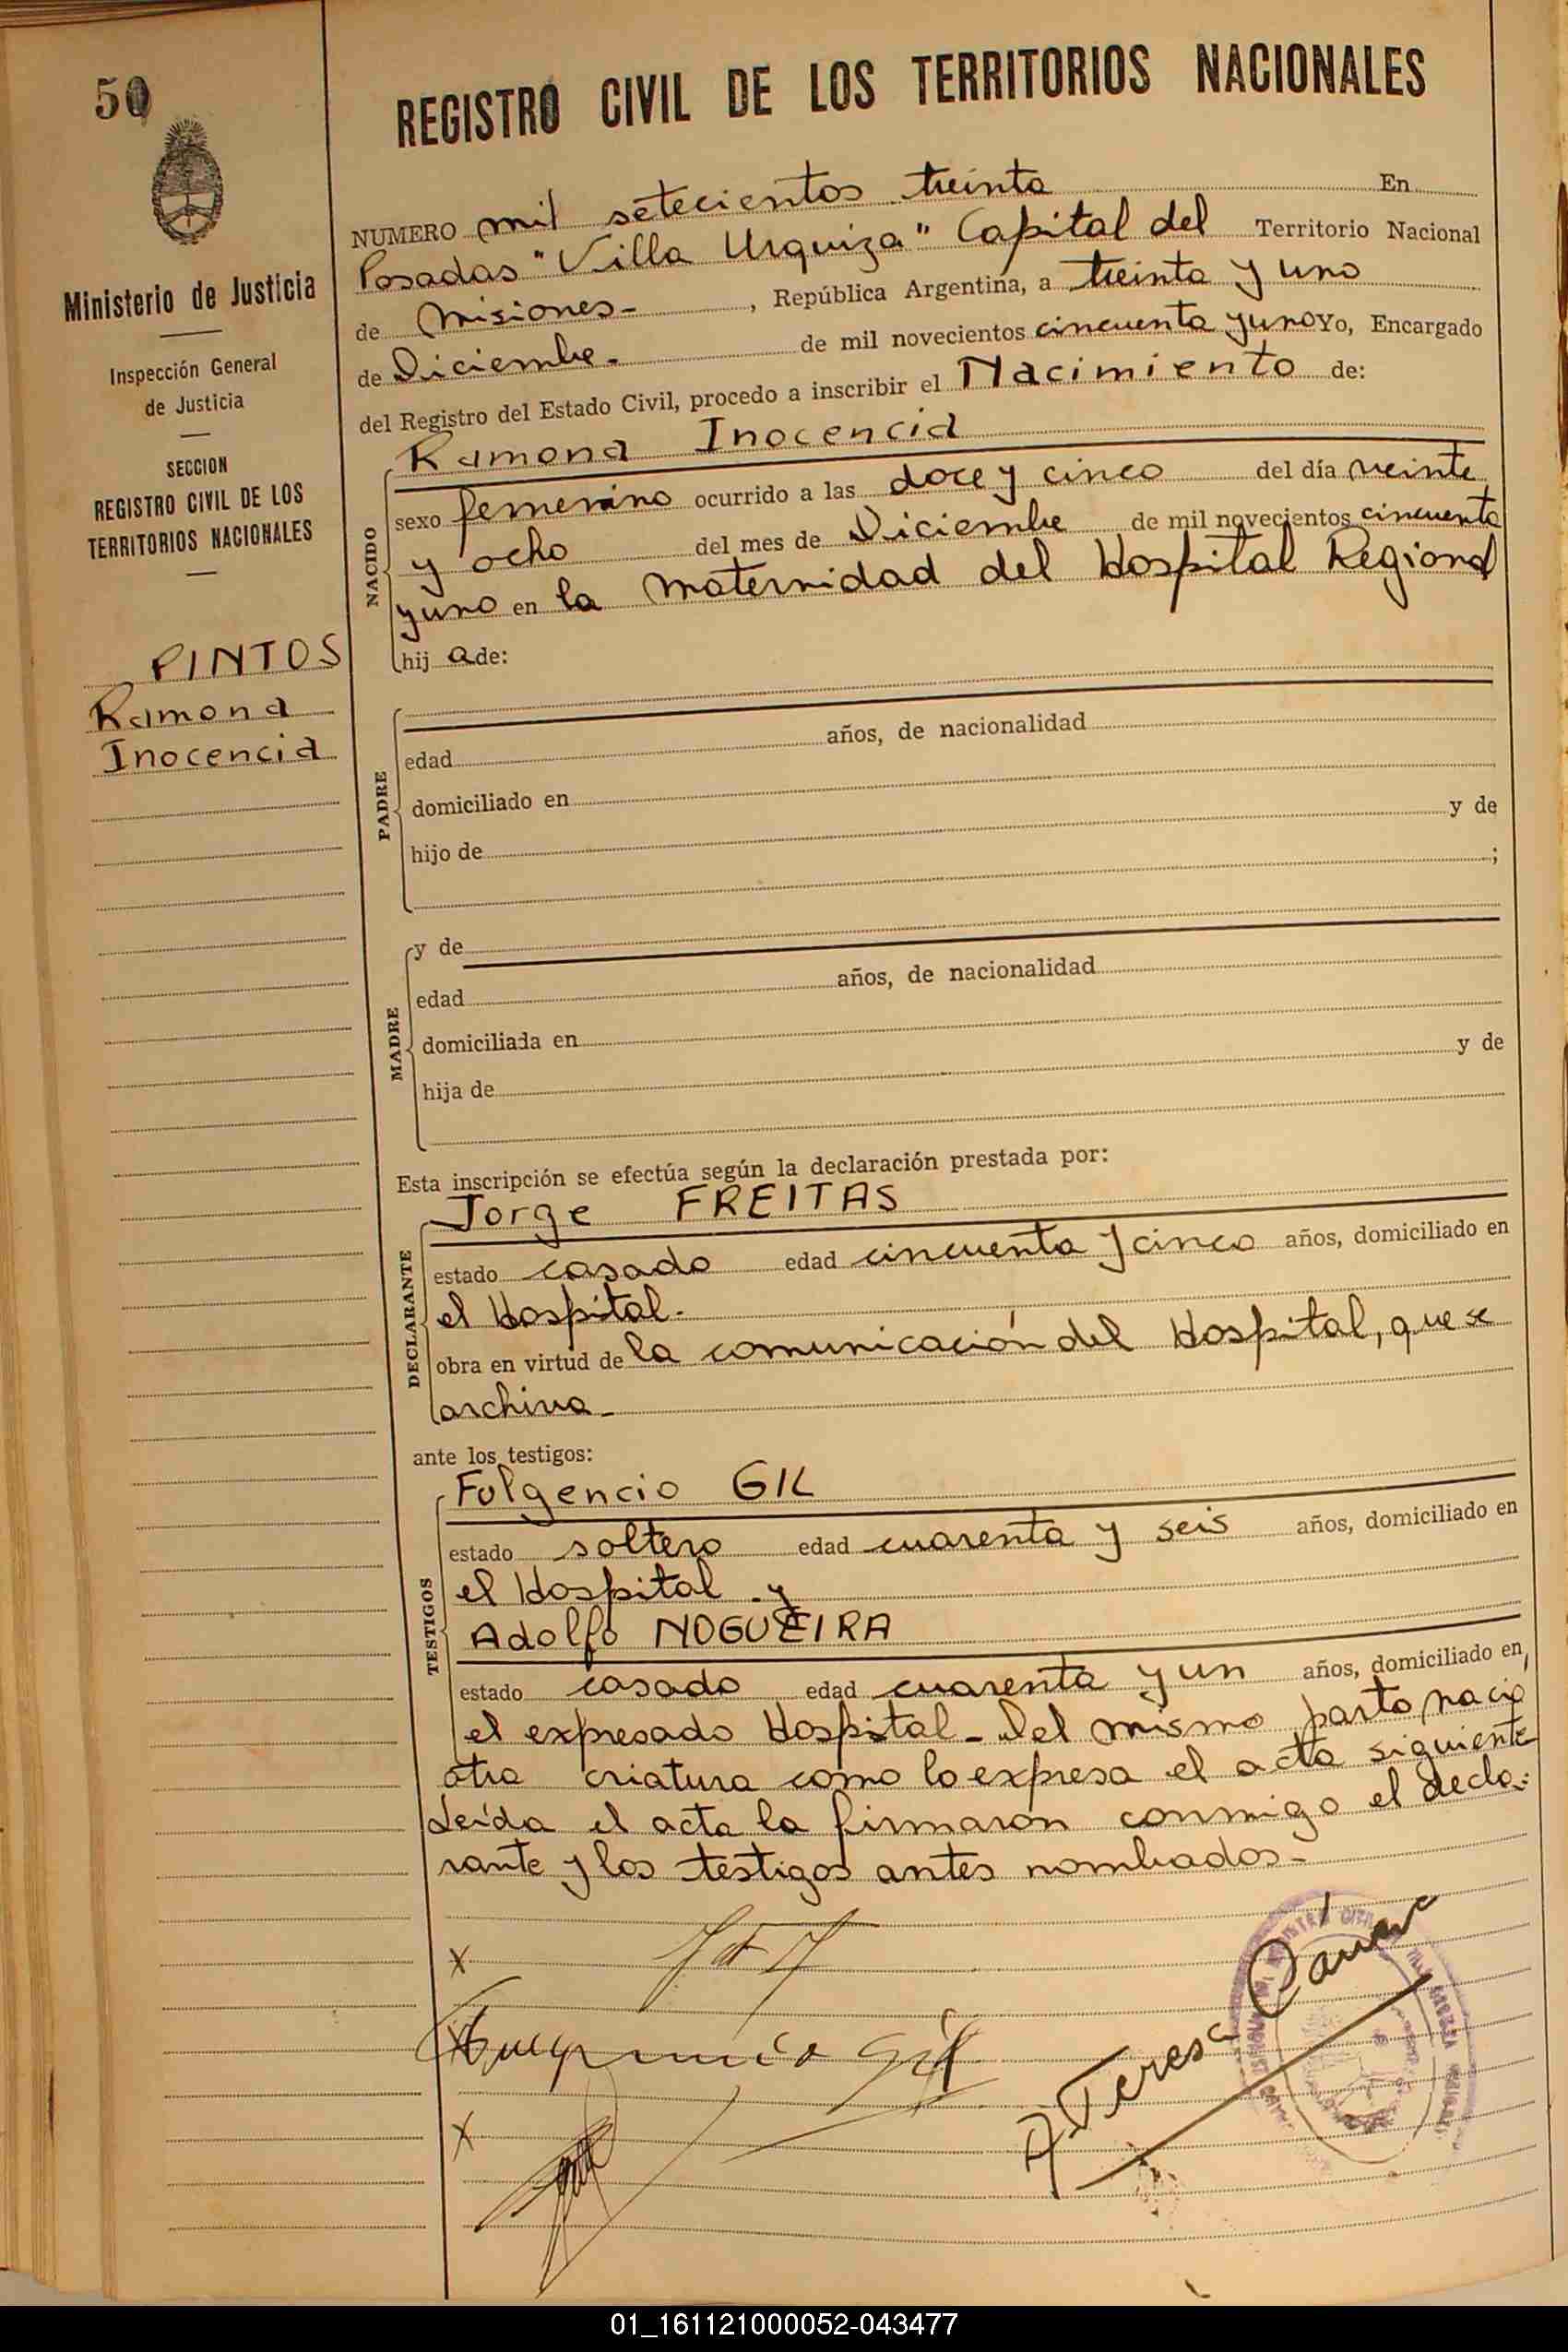 50
REGISTRO CIVIL DE LOS TERRITORIOS NACIONALES
Ministerio de Justicia
Inspección General
de Justicia
SECCION
REGISTRO CIVIL DE LOS
TERRITORIOS NACIONALES
PINTOS
Ramona
Inocencia
NUMERO mil setecientos treinta En
Posadas "Villa Urquiza" Capital del Territorio Nacional
de Misiones-, República Argentina, a treinta y uno
de Diciembre.- de mil novecientos cincuenta y uno Yo, Encargado
del Registro del Estado Civil, procedo a inscribir el Nacimiento de:
NACIDO
Ramona Inocencia
sexo femenino ocurrido a las doce y cinco del día veinte
y ocho del mes de Diciembre de mil novecientos cincuenta
y uno en la Maternidad del Hospital Regional
hij a de:
PADRE
edad años, de nacionalidad
domiciliado en
hijo de y de
;
MADRE
y de
edad años, de nacionalidad
domiciliada en
hija de y de
Esta inscripción se efectúa según la declaración prestada por:
DECLARANTE
Jorge FREITAS
estado casado edad cincuenta y cinco años, domiciliado en
el Hospital.-
obra en virtud de la comunicación del Hospital, que se
archiva-
ante los testigos:
TESTIGOS
Fulgencio GIL
estado soltero edad cuarenta y seis años, domiciliado en
el Hospital .y
Adolfo NOGUEIRA
estado casado edad cuarenta y un años, domiciliado en
el expresado Hospital- Del mismo parto nació
otra criatura como lo expresa el acta siguiente
Leída el acta la firmaron conmigo el decla-
rante y los testigos antes nombrados-
x
x
Gil
A Teresa
x
01_161121000052-043477